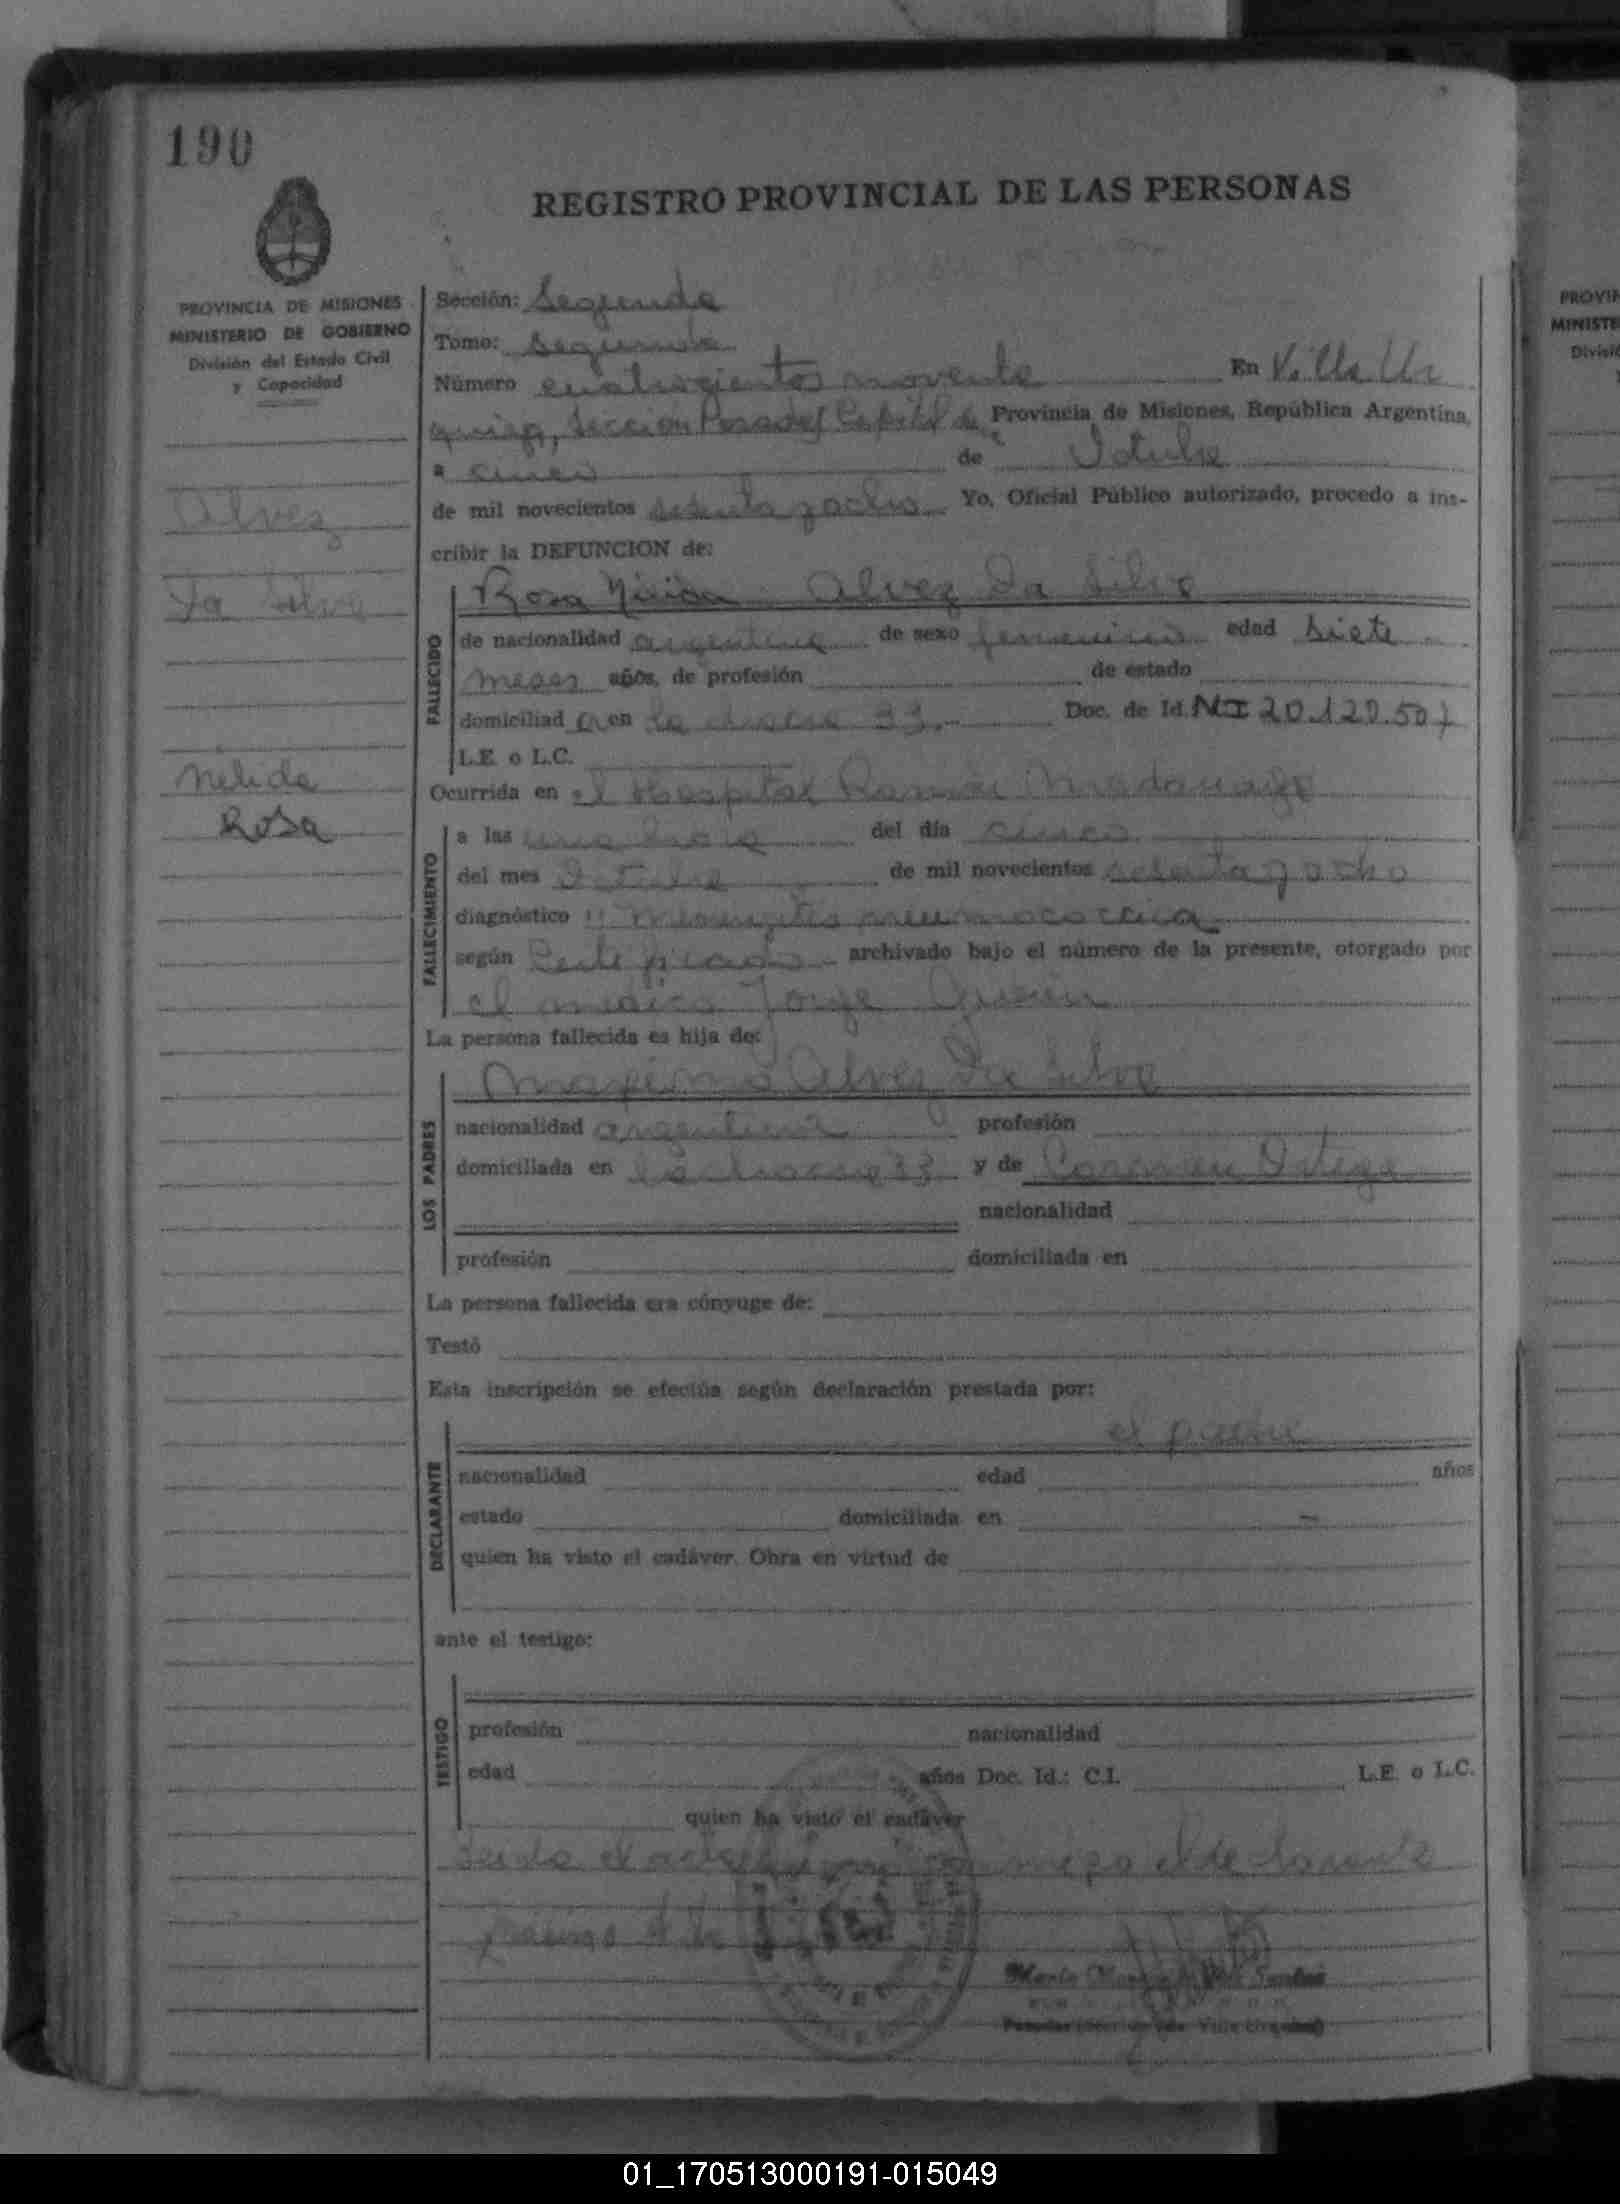 190
REGISTRO PROVINCIAL DE LAS PERSONAS
PROVINCIA DE MISIONES
MINISTERIO DE GOBIERNO
División del Estado Civil
y Capacidad
Alvez
Da Silva
Nelida
Rosa
Sección: Segunda
Tomo: Segundo
Número cuatrocientos noventa En Villa Ur
quiza, Sección Posadas Capital de Provincia de Misiones, República Argentina,
a cinco de Octubre
de mil novecientos setenta y ocho Yo, Oficial Público autorizado, procedo a ins-
cribir la DEFUNCION de:
FALLECIDO
Rosa Alvez Da Silva
de nacionalidad argentina de sexo femenino edad siete
meses años, de profesión de estado
domiciliad a en la chacra 33. Doc. de Id. N I 20.120.507
L.E. o L.C.
Ocurrida en el Hospital Ramón Madariaga
FALLECIMIENTO
a las una hora del día cinco
del mes Octubre de mil novecientos setenta y ocho
diagnóstico "Meningitis neumococcica
según Certificado archivado bajo el número de la presente, otorgado por
el medico Jorge
La persona fallecida es hija de:
LOS PADRES
Maximo Alvez Da Silva
nacionalidad argentina profesión
domiciliada en la chacra 33 y de Carmen Ortega
nacionalidad
profesión domiciliada en
La persona fallecida era cónyuge de:
Testó
Esta inscripción se efectúa según declaración prestada por:
DECLARANTE
el padre
nacionalidad edad años
estado domiciliada en
quien ha visto el cadáver. Obra en virtud de
ante el testigo:
TESTIGO
profesión nacionalidad
edad años Doc. Id.: C.I. L.E. o L.C.
quien ha visto el cadáver
Leida el acta la firma conmigo el declarante
01_170513000191-015049
PROVIN
MINISTE
Divisió